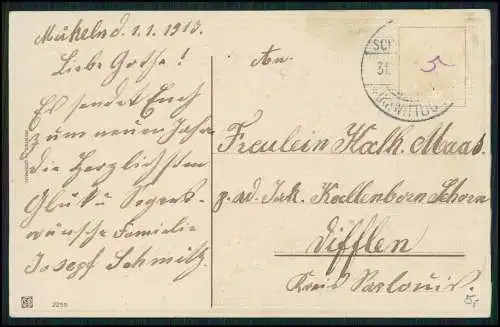 Mücheln d. 1.1.1913.
Liebe Gothe!
Es sendet Euch
zum neuen Jahre
die Herzlichsten
Glük u Segens
wünsche Familie
Josepf Schmitz
An.
Freulein Kath. Maas.
z. ad. Jak. Kollenborn Schorn
Difflen
Kreis Sarlouis.
2259